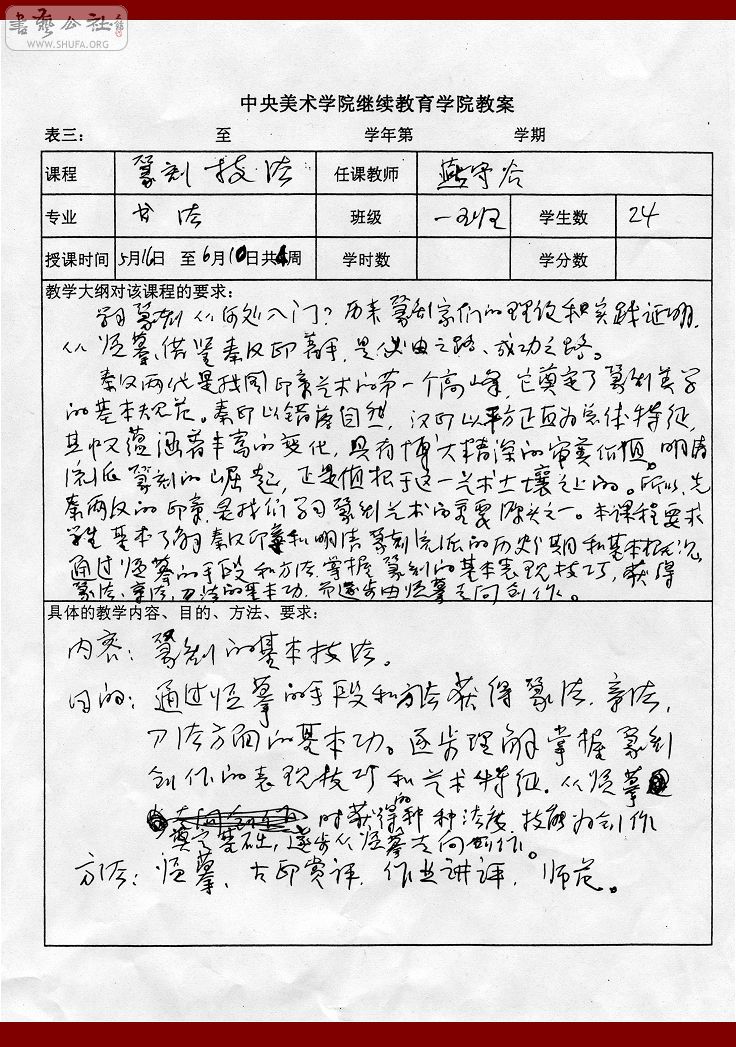 書藝公社
WWW.SHUFA.ORG
中央美术学院继续教育学院教案
表三： 至 学年第 学期
课程 篆刻技法 任课教师 燕守谷
专业 书法 班级 一班 学生数 24
授课时间 5月16日 至6月10日共4周 学时数 学分数
教学大纲对该课程的要求：
学习篆刻从何处入门？历来篆刻家们的理论和实践证明，
从临摹、借鉴秦汉印着手，是必由之路、成功之路。
秦汉两代是我国印章艺术的第一个高峰，它奠定了篆刻美学
的基本规范。秦印以错落自然，汉印以平方正直为总体特征，
其中又蕴涵着丰富的变化，具有博大精深的审美价值。明清
流派篆刻的崛起，正是植根于这一艺术土壤之上的。所以，先
秦两汉的印章，是我们学习篆刻艺术的重要源头之一。本课程要求
学生基本了解秦汉印章和明清篆刻流派的历史分期和基本概况，
通过临摹的手段和方法，掌握篆刻的基本表现技巧，获得
篆法、章法、刀法的基本功，而逐步由临摹走向创作。
具体的教学内容、目的、方法、要求：
内容：篆刻的基本技法。
目的：通过临摹的手段和方法获得篆法、章法，
刀法方面的基本功。逐步理解掌握篆刻
创作的表现技巧和艺术特征。从临摹
时获得的种种法度、技能为创作
奠定基础，逐步从临摹走向创作。
方法：临摹、古印赏评，作业讲评，师范。